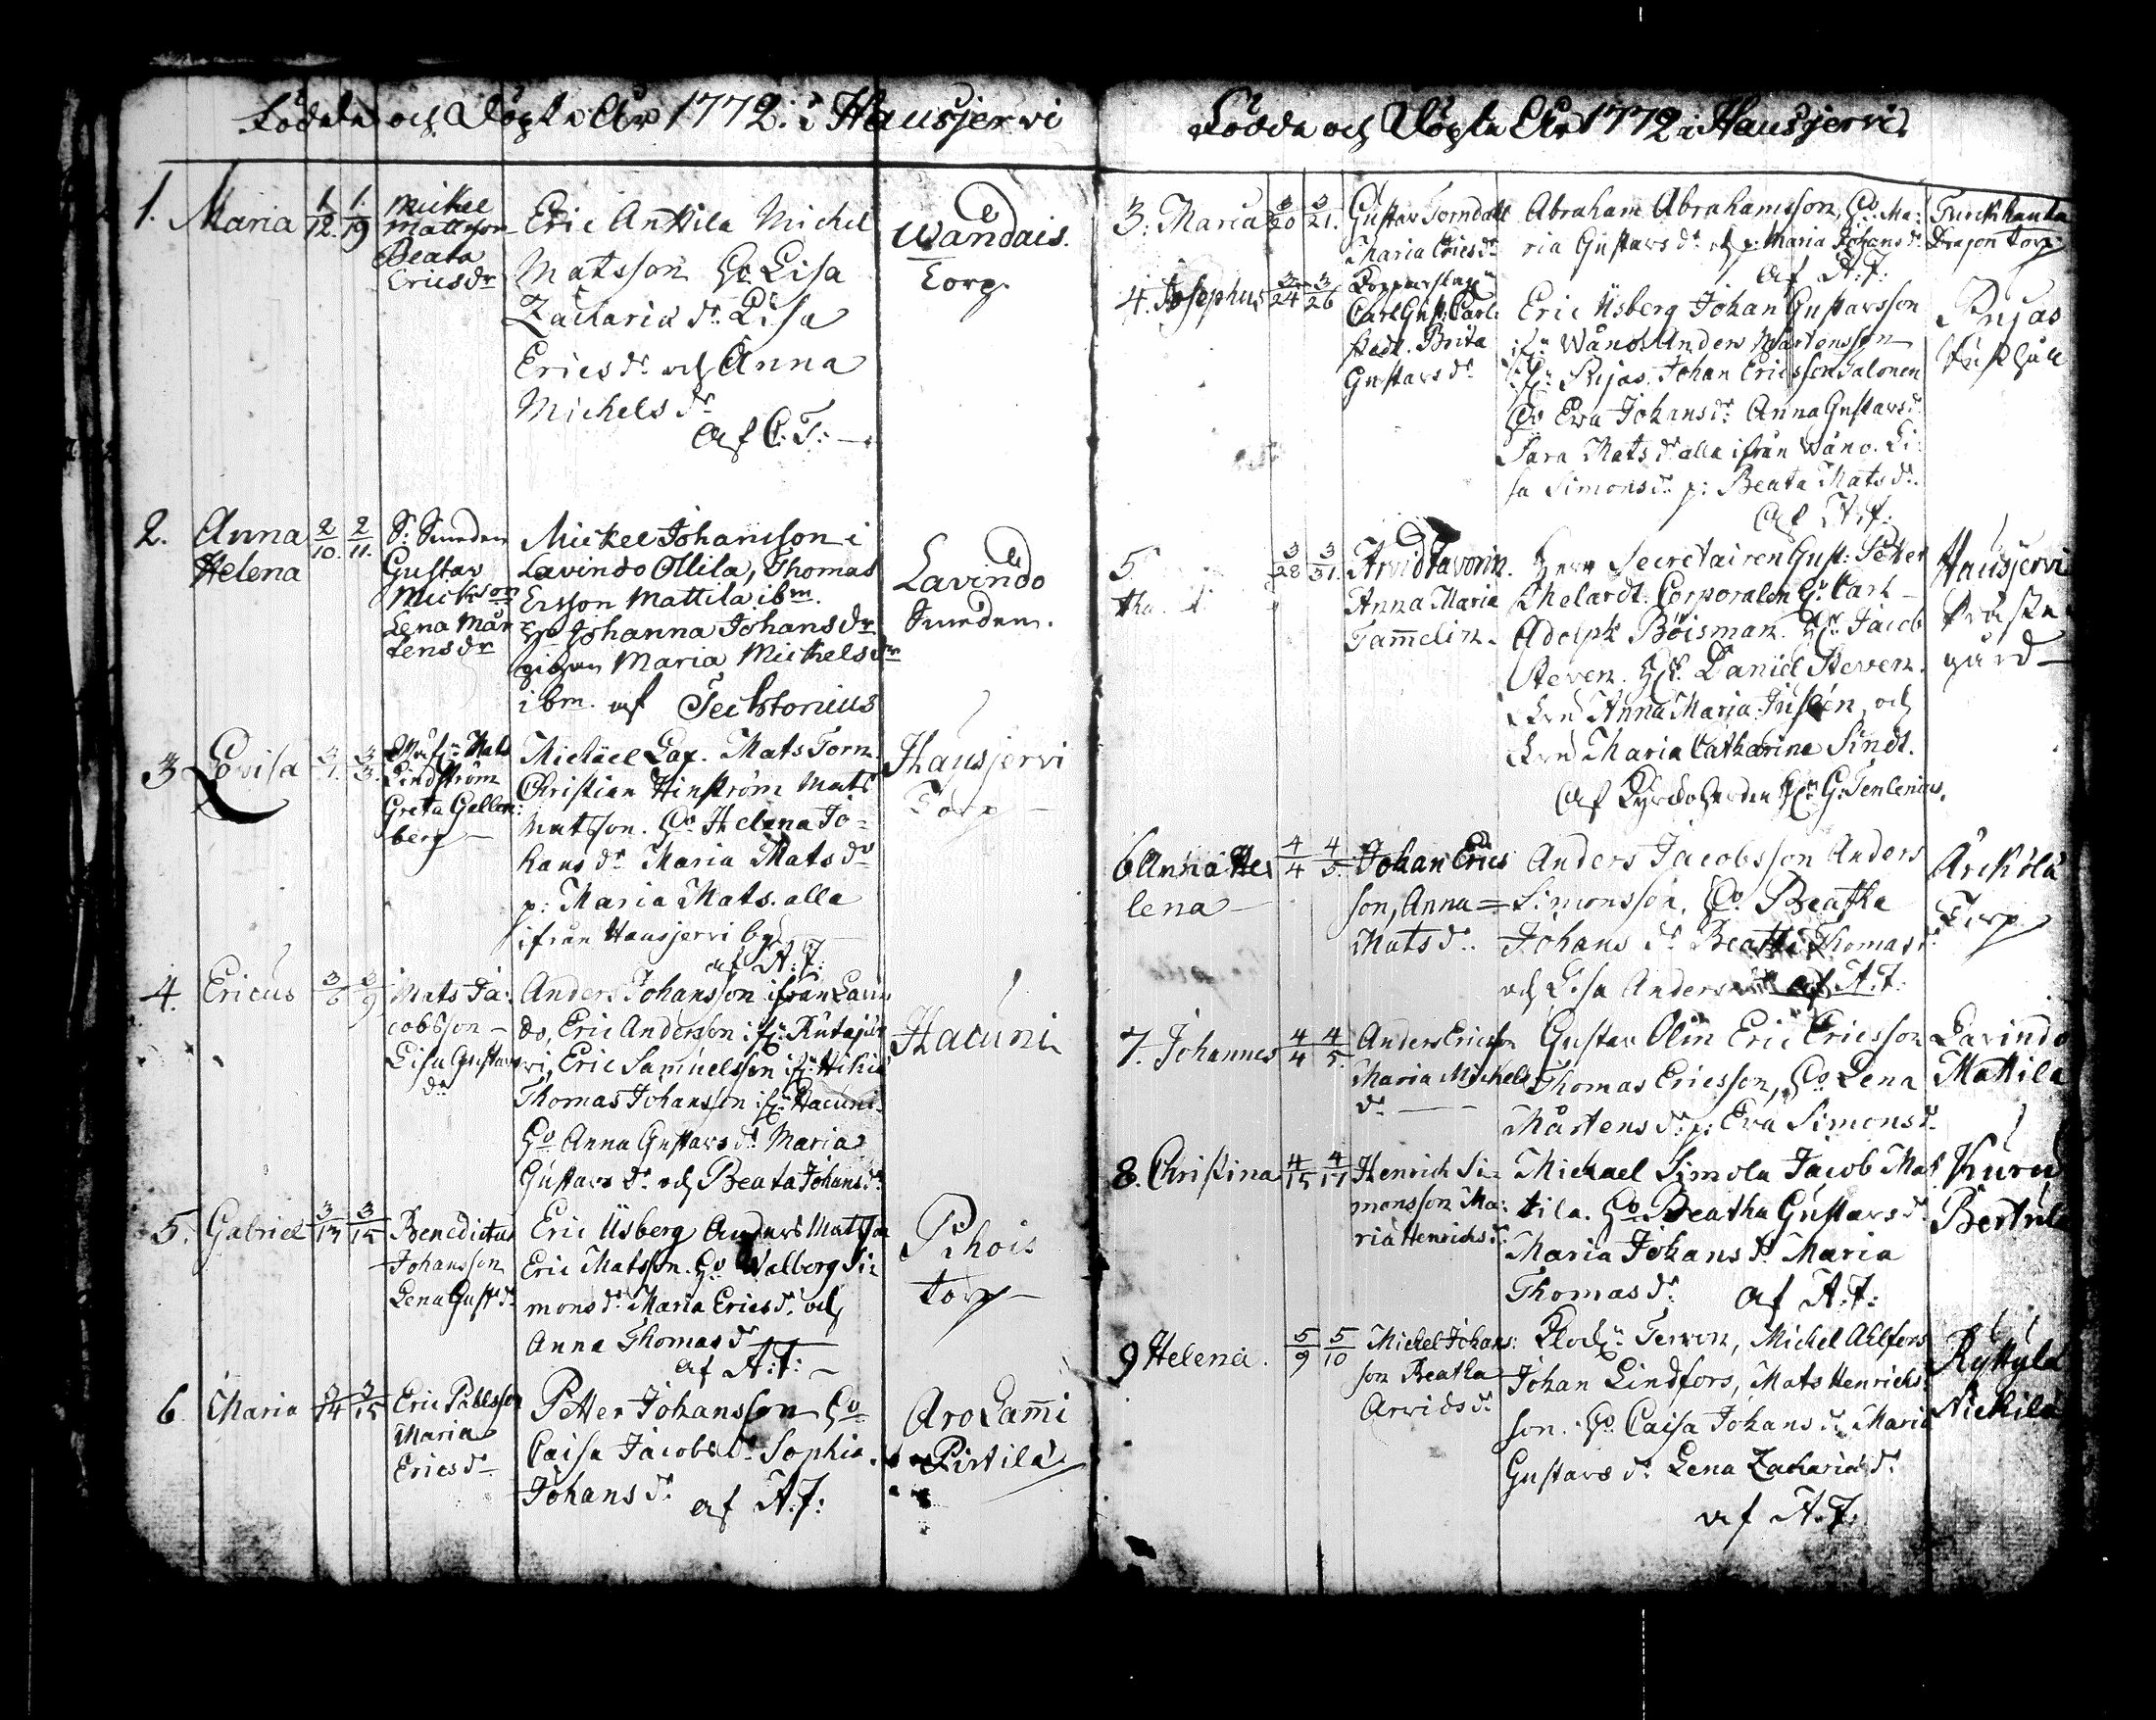 Födde och Döpte År 1772. i Hausjervi
1. Maria 1/12. 1/19
Mickel
Mattsson
Beata
Ericsdr
Eric Anttila Michel
Matsson Ho Lisa
Zacharia dr. Lisa
Erics dr och Anna
Michels dr
af C: T:
Wandais.
Torp.
2. Anna
Helena
2/10. 2/11.
S: Sunden
Gustav
Mickson
Lena Mår-
tensdr
Mickel Johansson i
Lavindo Ollila, Thomas
Ersson Mattila ibm.
Ho Johanna Johansdr
pigan Maria Mickelsdr
ibm. af Techtonius
Lavindo
Sunden.
3 Lovisa 3/1. 3/3.
Mats
Lindström
Greta Gellen:
berg
Michael Mats Torn
Christian Hinström Mats
Matsson. Ho Helena Jo-
hans dr Maria Mats dr
p: Maria Mats. alla
ifrån Hausjervi by
af A: F:
Hausjervi
Torp
4. Ericus 3/6 3/9
Mats Ja:
cobsson
Lisa Gustavs
dr
Anders Johansson ifrån Lavin
do, Eric Andersson ifrn Rutajer
vi, Eric Samuelsson ifrn Hikiä
Thomas Johansson ifrn Hacuni.
Ho Anna Gustavs dr Maria
Gustavs dr och Beata Johans dr
Hacuni
5. Gabriel 3/13 3/15
Benedictus
Johansson
Lena Gust dr
Eric Üsberg Anders Matsson
Eric Matsson. Ho Walborg Si-
mons dr Maria Erics dr och
Anna Thomas dr
af A: F:
Rhois
torp
6. Maria 3/14 3/15
Eric Påhlsson
Maria
Erics dr
Petter Johansson Ho
Caisa Jacobs dr Sophia
Johans dr af A: F:
Aro Lammi
Pirtilä
Födda och Döpta År 1772 i Hausjervi
3. Maria 3/20 3/21.
Gustav Torndahl
Maria Erics dr
Abraham Abrahamsson, Ho Ma:
ria Gustavs dr och p: Maria Johans dr
af A: F:
Turckhauta
Dragon torp
4. Josephus 3/24 3/26
Carl Gust: Carl
stedt. Brita
Gustavs dr
Eric Üsberg Johan Gustavsson
ifrn Wåno. Anders Mårtensson
ifrn Rijas. Johan Ericsson Salonen
Ho Eva Johans dr Anna Gustavs dr
Sara Mats dr alla ifrån Wåno. Li
sa Simons dr p: Beata Mats dr.
af A: F:
Rijas
5. 3/28 3/31.
Arvid Favorin.
Anna Maria
Tammelin.
Herr Secretairen Gust: Petter
Ehelardt. Corporalen Hr Carl
Adolph Böisman. Hr Jacob
Steven. Hr Daniel Steven.
Anna Maria Juslén, och
Maria Catharina Sindt.
af Kyrckoherden Hr G: Tenlenius.
Hausjervi
Präste
gård
6 Anna He
lena
4/4 4/5.
Johan Erics
son, Anna
Mats dr.
Anders Jacobsson Anders
Simonsson. Ho Beatha
Johans dr Beatha Thomas dr
och Lisa Anders af A: F:
Ärckölä
Torp
7. Johannes 4/4 4/5.
Anders Ericsson
Maria Michels
dr
Gustav Olin Eric Ericsson
Thomas Ericsson, Ho Lena
Mårtens dr p: Eva Simons dr
Lavindo
Mattila
8. Christina 4/15 4/17
Henrich Si-
monsson Ma:
ria Henrichs dr
Michael Simola Jacob Mat
tila. Ho Beatha Gustavs dr
Maria Johans dr Maria
Thomas dr af A: F:
Kuru
Bertula
9 Helena. 5/9 5/10
Michel Johans:
son Beatha
Arvids dr
Klock: Tervon, Michel Ahlfors
Johan Lindfors, Mats Henrichs:
son. Ho Caisa Johans dr Maria
Gustavs dr Lena Zacharia dr
af A: F:
Ryttylä
Nickilä